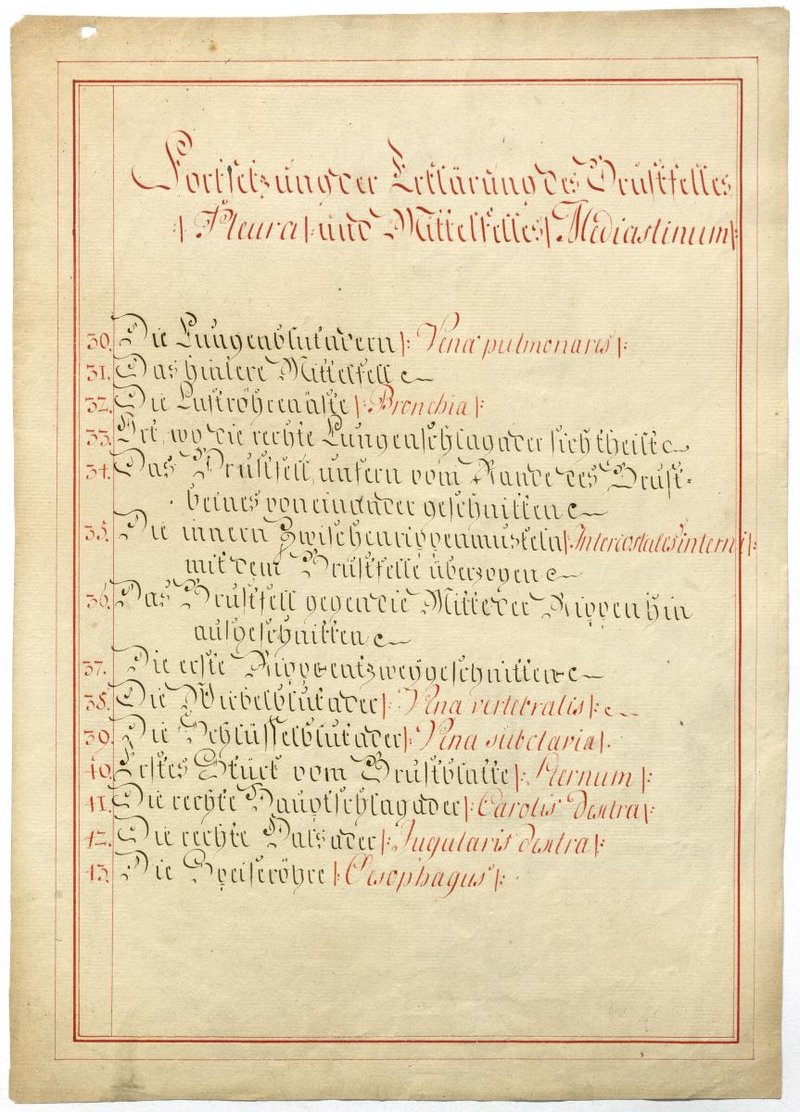 Fortsetzung der Erklärung des Brustfelles
|: Pleura :| und Mittelfelles |: Mediastinum :|
30. Die Lungenblutadern |: Vena pulmonaris :|
31. Das hintere Mittelfell
32. Die Luftröhrenäste |: Bronchia :|
33. Ort, wo die rechte Lungenschlagader sich theilt
34. Das Brustfell, unfern vom Rande des Brust-
beines von einander geschnitten
35. Die innern Zwischenrippenmuskeln |: Intercostales interni :|
mit dem Brustfelle überzogen
36. Das Brustfell gegen die Mitte der Rippen hin
ausgeschnitten
37. Die erste Rippe entzwey geschnitten
38. Die Wirbelblutader |: Vena vertebralis :|
39. Die Schlüsselblutader |: Vena subclavia :|
40. Erstes Stück vom Brustblatte |: Sternum :|
41. Die rechte Hauptschlagader |: Carotis dextra :|
42. Die rechte Halsader |: Jugularis dextra :|
43. Die Speiseröhre |: Oesophagus :|